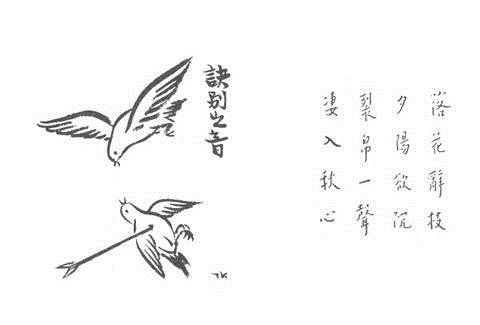 落花辭枝
夕陽欲沉
裂帛一聲
凄入秋心
訣別之音
TK